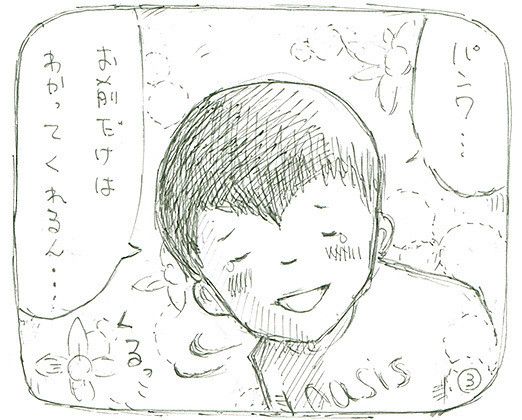 パンク…
お前だけは
わかってくれるん…
くるっ
oasis
③